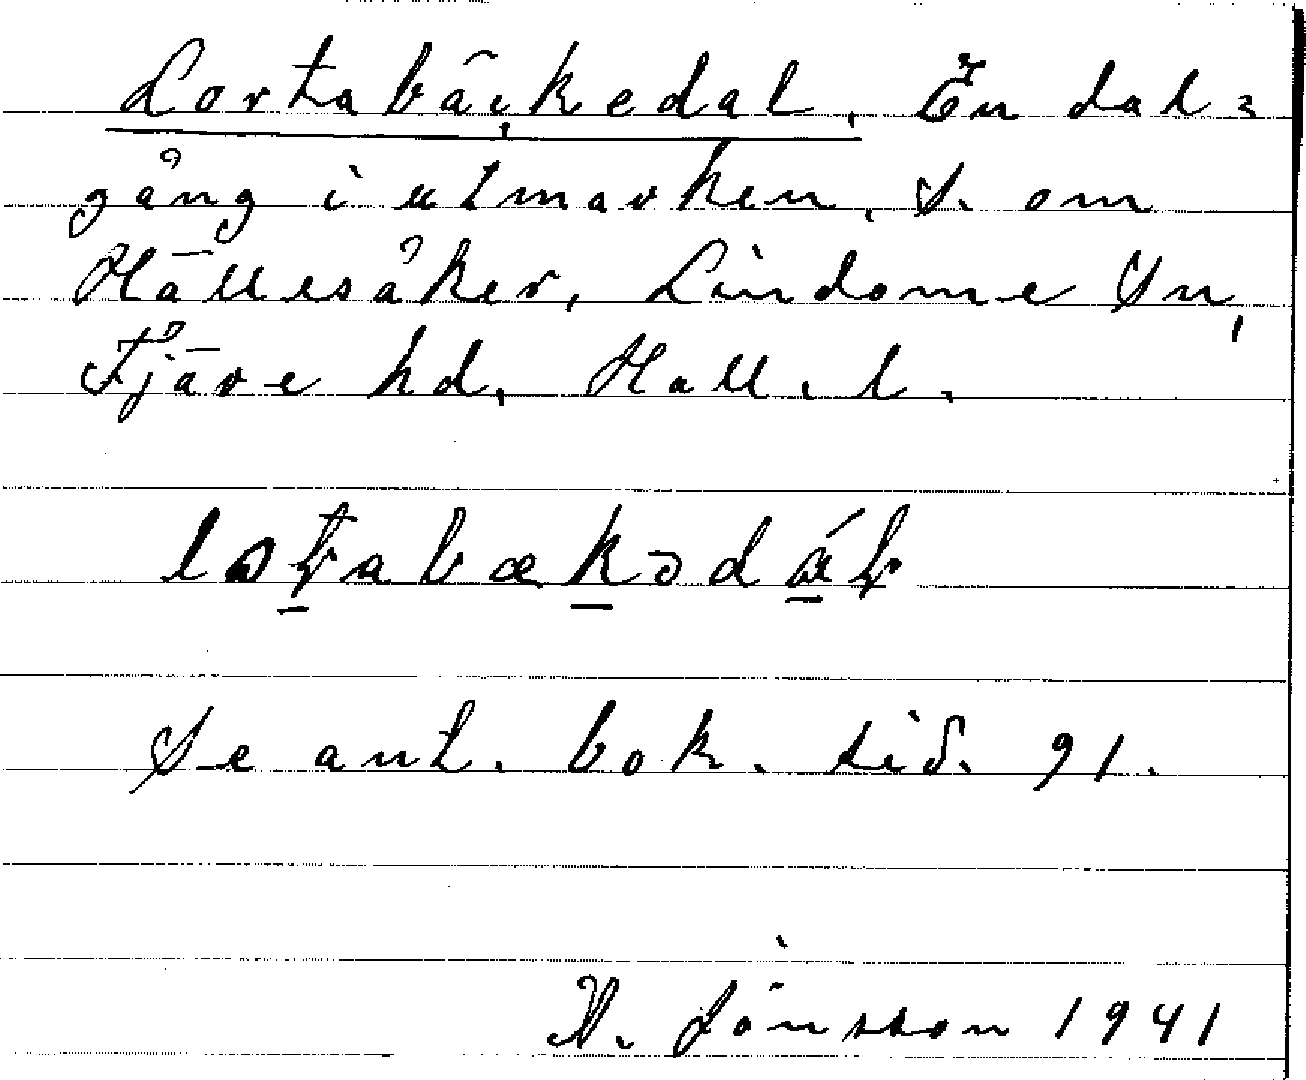 Lortabäckedal. En dal=
gång i utmarken, S. om
Hällesåker, Lindome Sn,
Fjäre hd, Hall. l.
Se ant. bok. sid. 91.
N. Jönsson 1941